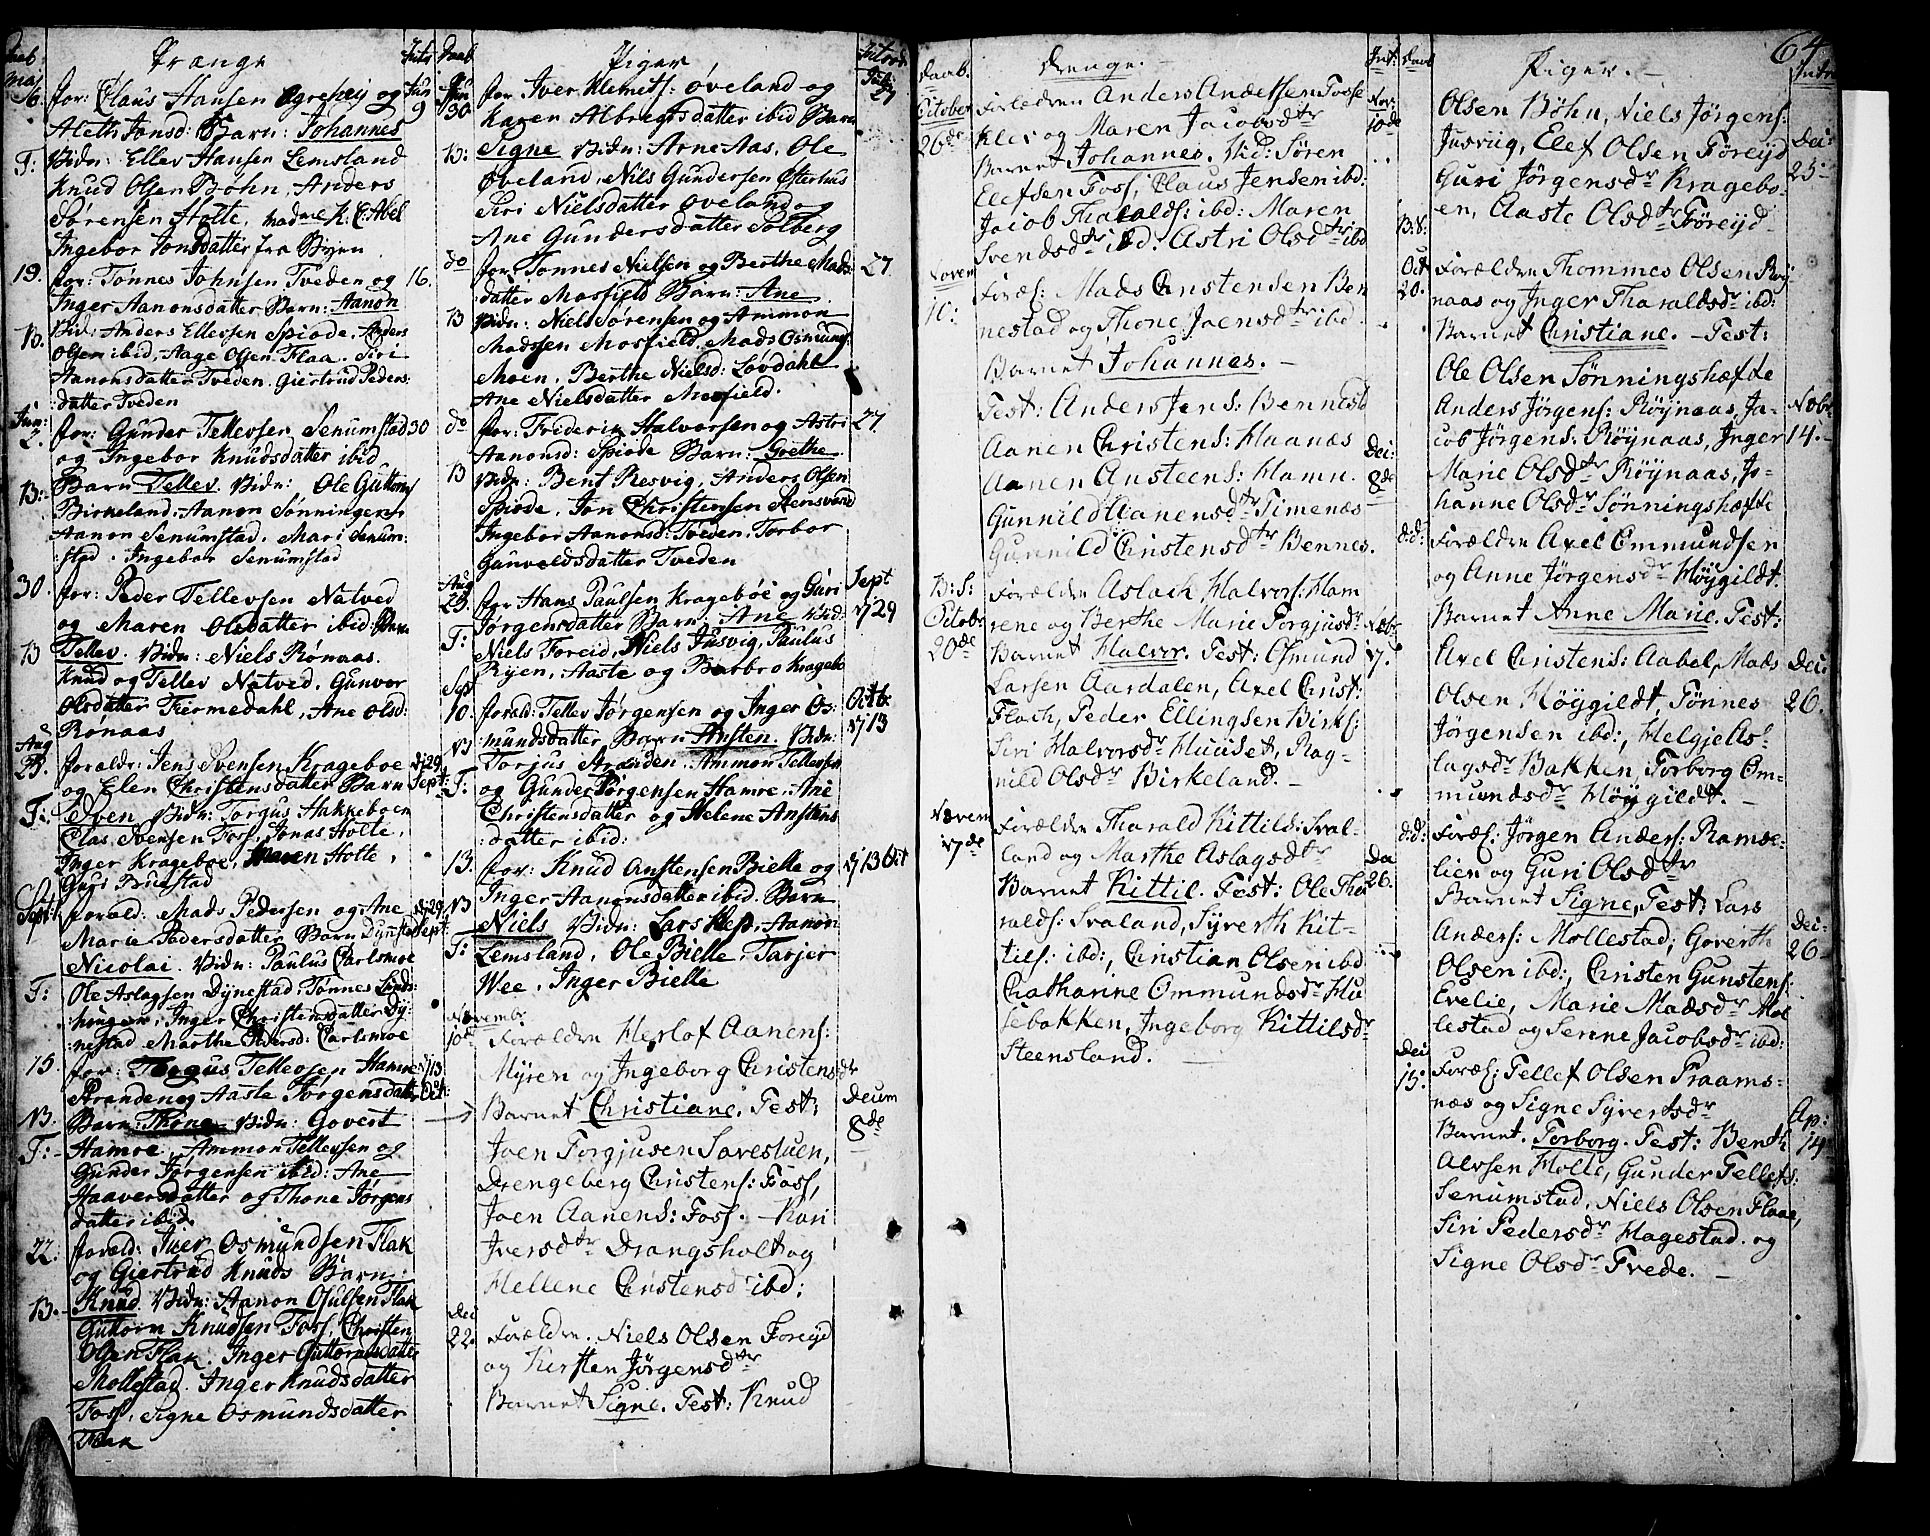 Daab
Drænge
Intr
Maj
16.
for: Claus Hansen Agrehej og
Jun
9
Aleth Jonsd: Barn: Johannes
T:
Vidn: Ellev Hansen Lemsland
Knud Olsen Bøhn, Anders
Sørensen Holte, Madme K. C. Abel
Ingebor Jonsdatter fra Byen
19.
for: Tønnes Johnsen Tveden og
16.
Inger Aanonsdatter Barn: Aanon
B.
Vid: Anders Ellefsen Spiode, Anders
Olsen ibid, Aage Olsen Flaa. Siri
Aanonsdatter Tveden. Giertrud Peders
datter Tveden
Jun:
2.
for: Gunder Tellevsen Senumstad
30
og Ingebor Knudsdatter ibid
B:
Barn Tellev. Vidn: Ole Guttorms
Birkeland. Aanon Sønningen
Aanon Senumstad. Mari Senum-
stad. Ingebor Senumstad
30.
for: Peder Tellevsen Natved
og Maren Olsdatter ibid: Barn
B
Tellev. Vidn: Niels Rønaas.
Knud og Tellev Natved. Gunvor
Olsdatter Tiermedahl, Ane Olsd:
Rønaas
Aug
25.
forældr: Jens Svensen Krageboe
29
og Elen Christensdatter Barn
Sept:
T:
Sven Vidn: Torgus Hakkeboen
Clas Svensen Foss, Jonas Holte,
Inger Krageboe, Maren Holte,
Guri Buestad
Sept:
forald: Mads Pedersen og Ane
29
Marie Pedersdatter Barn Dynestad
Sept:
Nicolai. Vidn: Paulus Carlsmoe
T:
Ole Aslagsen Dynestad Tønnes
Inger Christensdatter Dy-
nestad Marthe Pedersd: Carlsmoe
15.
for: Torgus Tellevsen Hamre
13
Stranden og Aaste Jørgensdatter
Oct:
B.
Barn: Thone Vidn: Govert
T:
Hamre, Ammon Tellevsen og
Gunder Jørgensen ibid: Ane
Haaversdatter og Thone Jørgens
datter ibid.
22.
forald: Iver Osmundsen Flak
og Giertrud Knuds Barn:
B.
Knud. Vidn: Aanon Gulsen Flak
Guttorm Knudsen Foss, Christen
Olsen Flak. Inger Guttormsdatter
Mollestad. Inger Knudsdatter
Foss, Signe Osmundsdatter
Flak
Daab
Piger
Introd
Jun
30.
for Iver Klemets: Øveland og
Julij
27
Karen Albregtsdatter ibid Barn
B:
Signe Vidn: Arne Aas, Ole
Øveland, Nils Gundersen Østerhus
Siri Nielsdatter Øveland og
Ane Gundersdatter Solberg
do
for Tonnes Nielsen og Berthe Mads
27.
datter Mosfield Barn: Ane
B
Vidn: Niels Sørensen og Ammon
Madssen Mosfield, Mads Osmunds:
Moen. Berthe Nielsd: Løvdahl
Ane Nielsdatter Mosfield.
do
for: Friderik Halvorsen og Astri
27
Aanonsd: Spiode Barn: Grethe
B
Vidn: Bent Resvig, Anders Olsen
Spiode, Jon Christensen Stensvand
Ingebor Aanonsd: Tveden, Torbor
Gunvoldsdatter Tveden
Aug
25.
for Hans Paulsen Kragebøe og Guri
Sept
29
Jørgensdatter Barn: Ane Vid:
T:
Niels Foreid, Niels Jusvig, Paulus
Ryen, Aaste og Barbro Kragebo
Sep
10.
forald: Tellev Jørgensen og Inger Os-
Octbr
13
B
mundsdatter Barn Ansten. Vidn:
Torjus Stranden. Ammon Tellevsen
T:
og Gunder Jørgensen Hamre, Ane
Christensdatter og Helene Anstens
datter ibid:
13.
for: Knud Anstensen Bielle og
13 Oct
Inger Aanonsdatter ibid. Barn
B
Niels Vidn: Lars Klep, Aanon
T:
Lemsland, Ole Bielle, Tarjer
Wee, Inger Bielle
Novembr
10de
Forældre Herlof Aanens:
Myren og Ingeborg Christensdr
Barnet Christiane. Test:
Decem
8de
Joen Torgjusen Savesluen,
Drengeberg Christens: Foss,
Joen Aanens: Foss. Kari
Iversdtr Drangsholt og
Hellene Christensdr ibd:
Dec
22.
Forældre. Niels Olsen Foreyd
og Kirsten Jørgensdtr
Barnet Signe. Test: Knud
Daab.
Drenge.
Int:
October
26de
Forældre Anders Andersen Fosse
Nov:
10de
Klev og Maren Jacobsdtr
Barnet Johannes. Vid: Søren
Elefsen Foss, Claus Jensen ibd:
Jacob Tharalds: ibd: Maren
Svendsdtr ibd: Astri Olsdtr ibd
Novem
10:
Foræl: Mads Christensen Ben
nestad og Thone Joensdtr ibd
Barnet Johannes.
Test: Anders Jens: Bennest
Aanen Christens: Haanæs
Dec:
8de
Aanen Ansteens: Hamn.
Gunnild Aanensdtr Timenæs
Gunnild Christensdtr Bennes.
B: S:
Octobr
20de
Forældre Aslach Halvors: Ham
rene og Berthe Marie Torgjusdr
Nobr
17.
Barnet Halvor. Test: Osmund
Larsen Aardalen, Axel Christ:
Flach, Peder Ellingsen Birks:
Siri Halvorsdr Huuset, Rag-
nild Olsdr Birkeland.
Novem
17de
Forældre Tharald Kittils: Sval-
land og Marthe Aslagsdtr
Barnet Kittil. Test: Ole Tha
26.
ralds: Svaland, Syverth Kit-
tils: ibd:, Christian Olsen ibd:
Chatharine Ommundsdr Hu
sebakken, Ingeborg Kittilsdr
Steensland.
Daab
Piger.
64
Intro
Olsen Bøhn, Niels Jørgens:
Dec:
25
Jusvig, Elef Olsen Føreyd
Guri Jørgensdr Kragebo-
en, Aaste Olsdtr Føreyd
B: S:
Oct
20.
Forældre Thommes Olsen Røy
naas og Inger Tharaldsdr ibd:
Barnet Christiane. Test:
Ole Olsen Sønningshæfte
Anders Jørgens: Røynaas, Ja-
Nobr
14.
cob Jørgens: Røynaas, Inger
Marie Olsdtr Røynaas, Jo-
hanne Olsdr Sønningshæfte
d: d:
Forældre Axel Ommundsen
og Anne Jørgensdr Høygildt.
Barnet Anne Marie. Test:
Axel Christens: Aabel, Mads
Dec:
26.
Olsen Høygildt, Tønnes
Jørgensen ibd:, Helgje As-
lagsdr Bakken, Torborg Om-
mundsdr Høygildt.
d: d:
Foræl: Jørgen Anders: Ramse-
lien og Guri Olsdtr
Barnet Signe, Test: Lars
Dec:
26
Anders: Mollestad, Goverth
Olsen ibd:, Christen Gunstens:
Evelie, Marie Madsdr Mol
lestad og Senne Jacobsdr ibd:
Dec
15:
Foræl: Tellef Olsen Praams-
næs og Signe Syvertsdr
Ap:
14
Barnet. Torborg. Test: Benth
Alvsen Holle, Gunder Tellefs:
Senumstad, Niels Olsen Flaae,
Siri Pedersdr Hagestad. og
Signe Olsdr Trede.